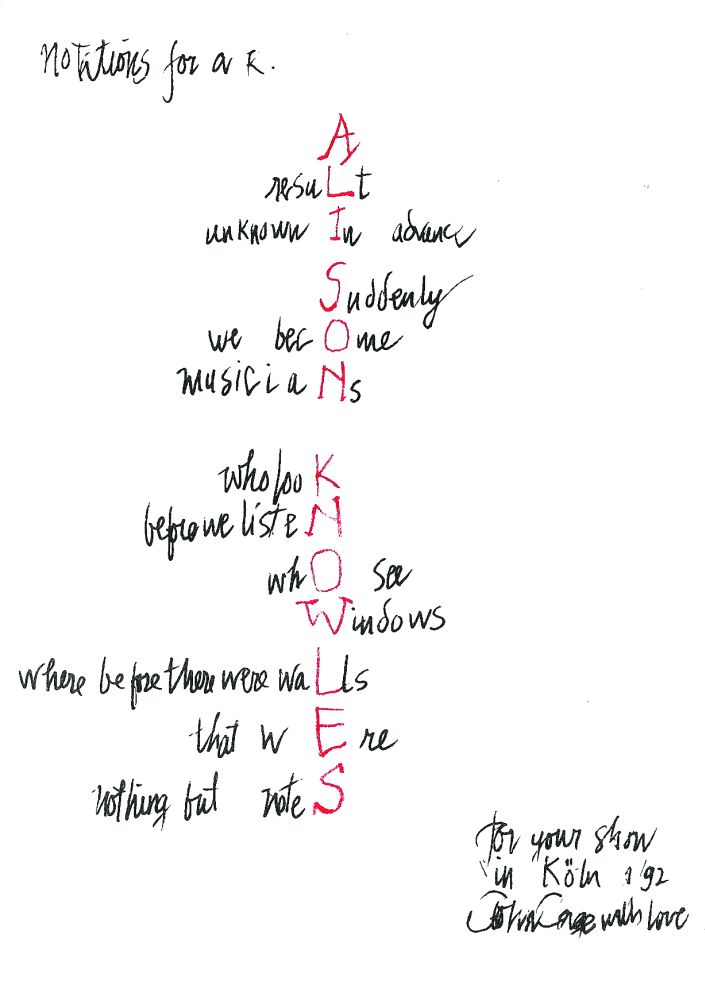 notations for a k.
A
resuLt
unknown In advance
Suddenly
we becOme
musiciaNs
who looK
before we listeN
whO see
Windows
where before there were waLls
that wEre
nothing but noteS
for your show
in Köln 1/92
John Cage with love